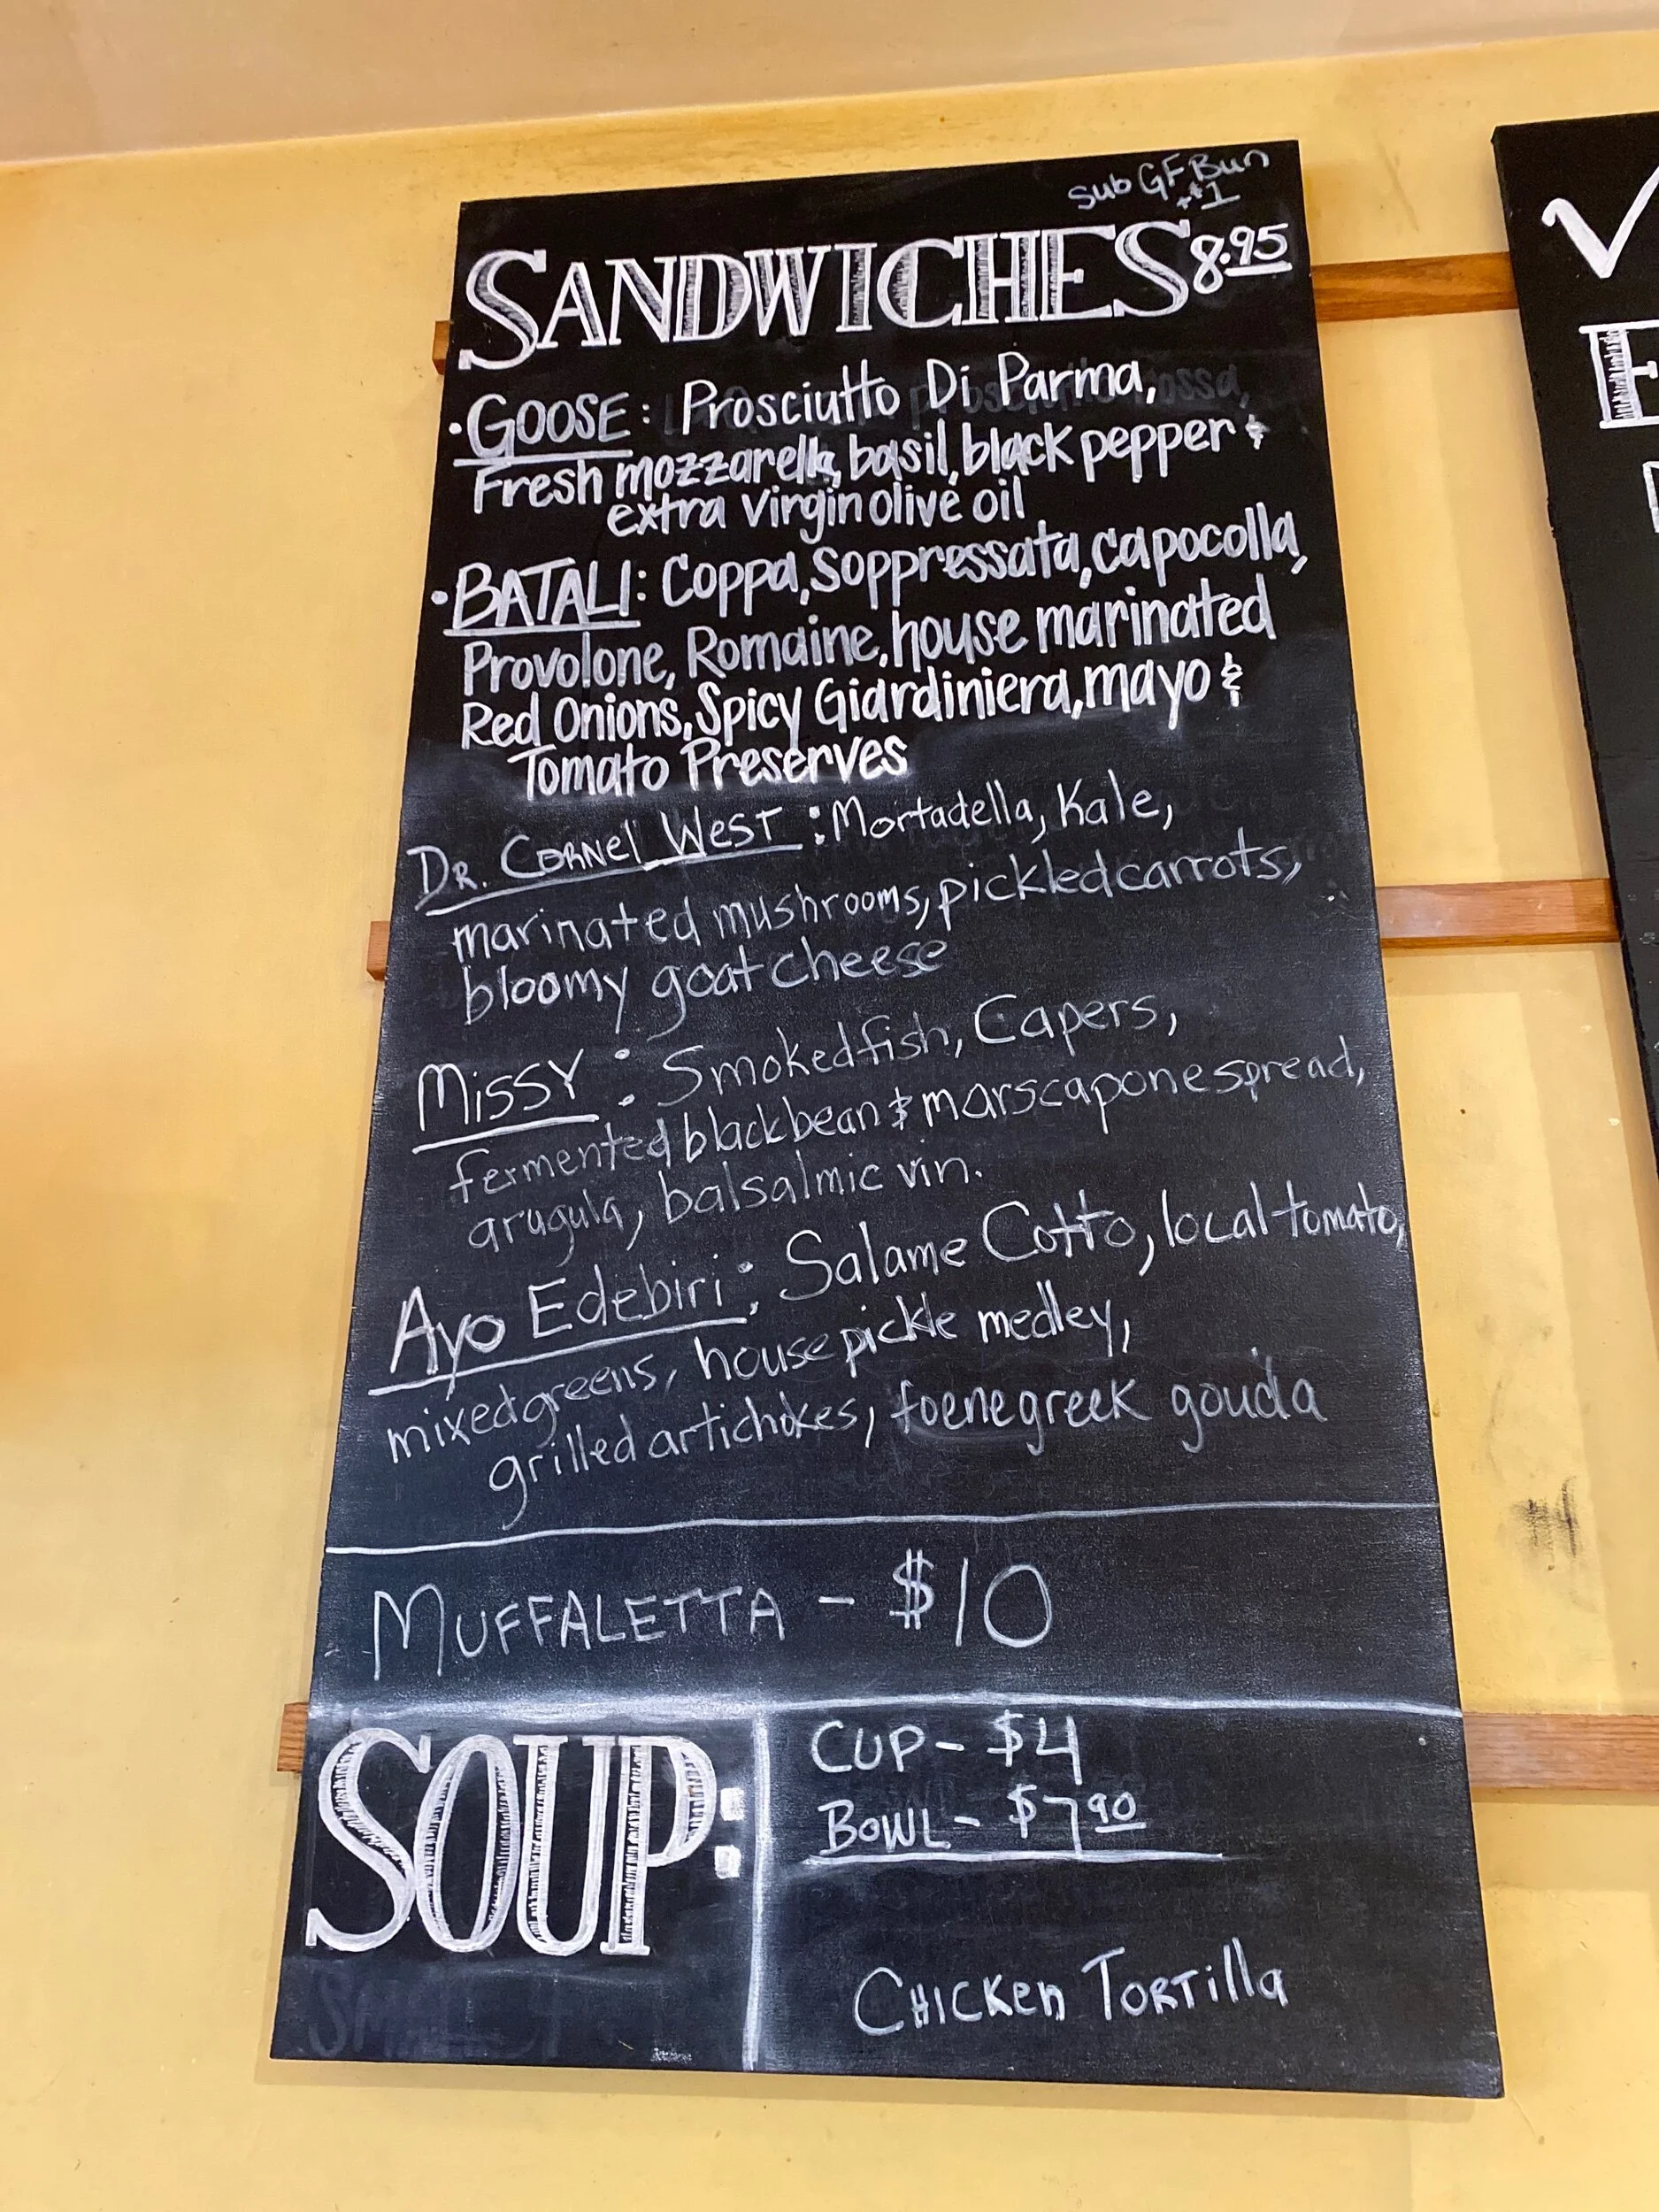 Sub GF Bun
+$1
SANDWICHES 8.95
• GOOSE: Prosciutto Di Parma,
Fresh mozzarella, basil, black pepper &
extra virgin olive oil
• BATALI: Coppa, Soppressata, capocolla,
Provolone, Romaine, house marinated
Red Onions, Spicy Giardiniera, mayo &
Tomato Preserves
DR. CORNEL WEST: Mortadella, Kale,
marinated mushrooms, pickled carrots,
bloomy goat cheese
MISSY: Smoked fish, Capers,
fermented black bean & marscapone spread,
arugula, balsalmic vin.
Ayo Edebiri: Salame Cotto, local tomato,
mixed greens, house pickle medley,
grilled artichokes, foenegreek gouda
MUFFALETTA - $10
SOUP:
CUP - $4
BOWL - $7.90
CHICKEN TORTILLA